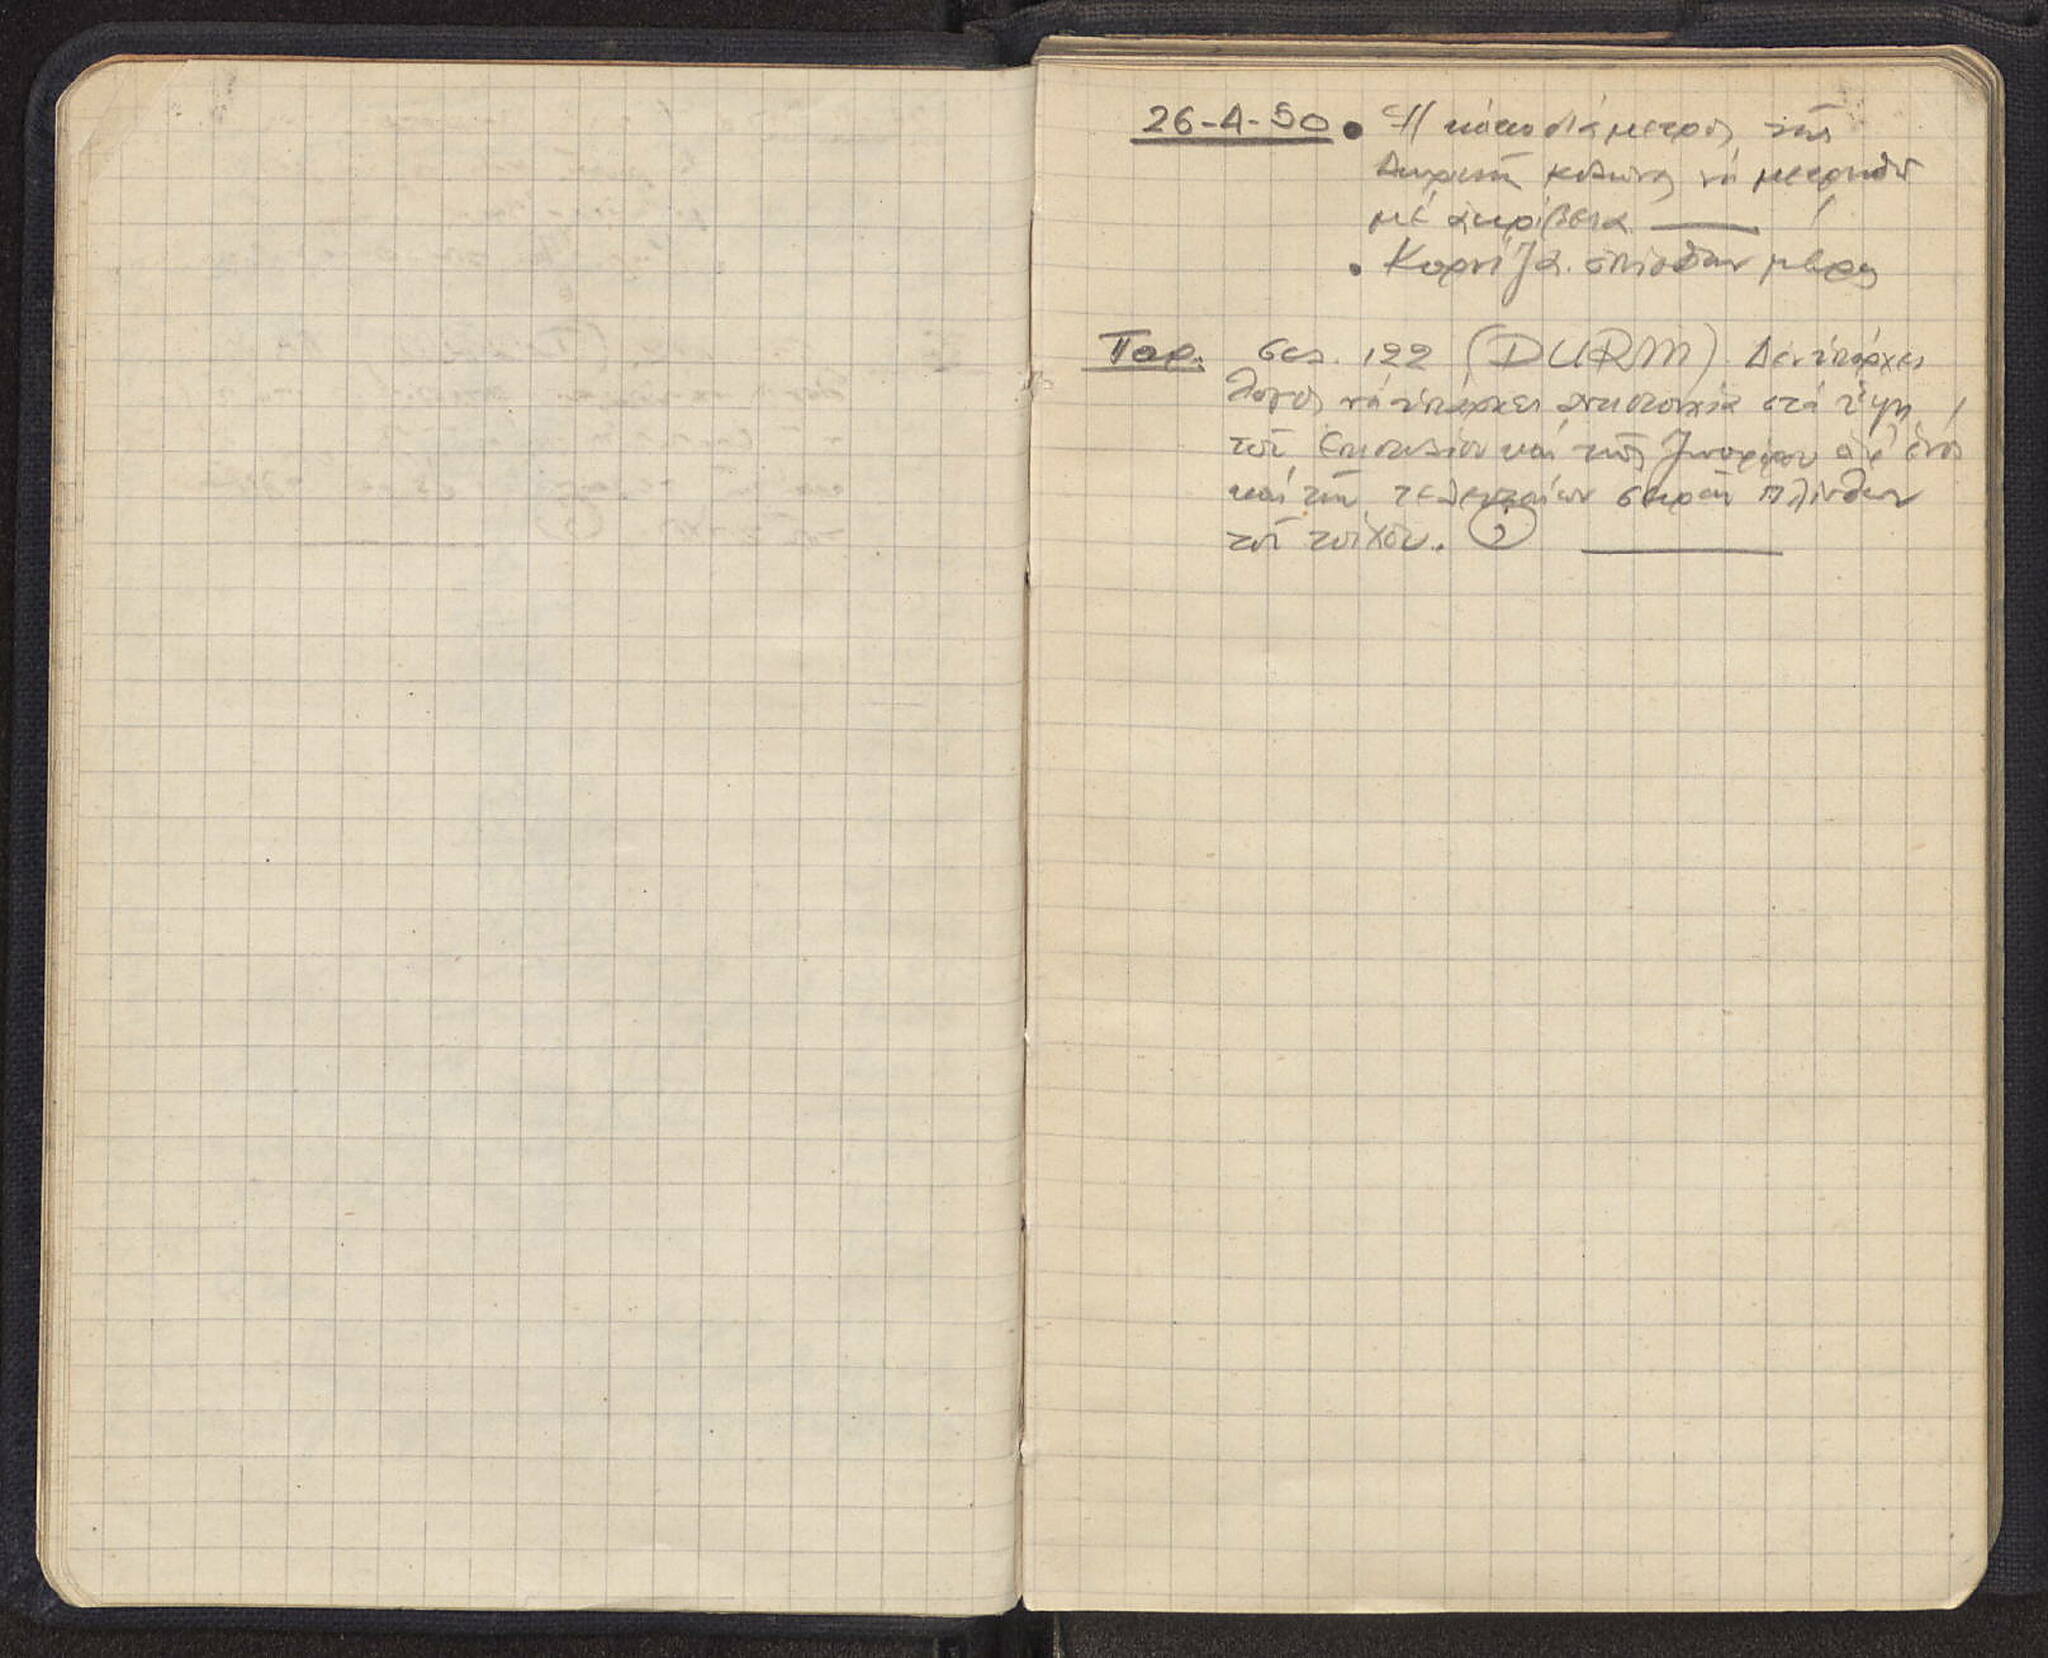 26-4-50 • Ἡ κάτω διάμετρος τῆς
Δωρικῆς κολώνας νά μετρηθῆ
μέ ἀκρίβεια —
• Κορνίζα. ὀπίσθιον μέρος
Παρ. σελ. 122 (DURM). Δέν ὑπάρχει
λόγος νά ὑπάρχει ἀντιστοιχία στά ὕψη
τοῦ ἐπιστυλίου καί τῆς ζωοφόρου ἀφ' ἑνός
καί τῶν τελευταίων σειρῶν πλίνθων
τοῦ τοίχου. (;) —